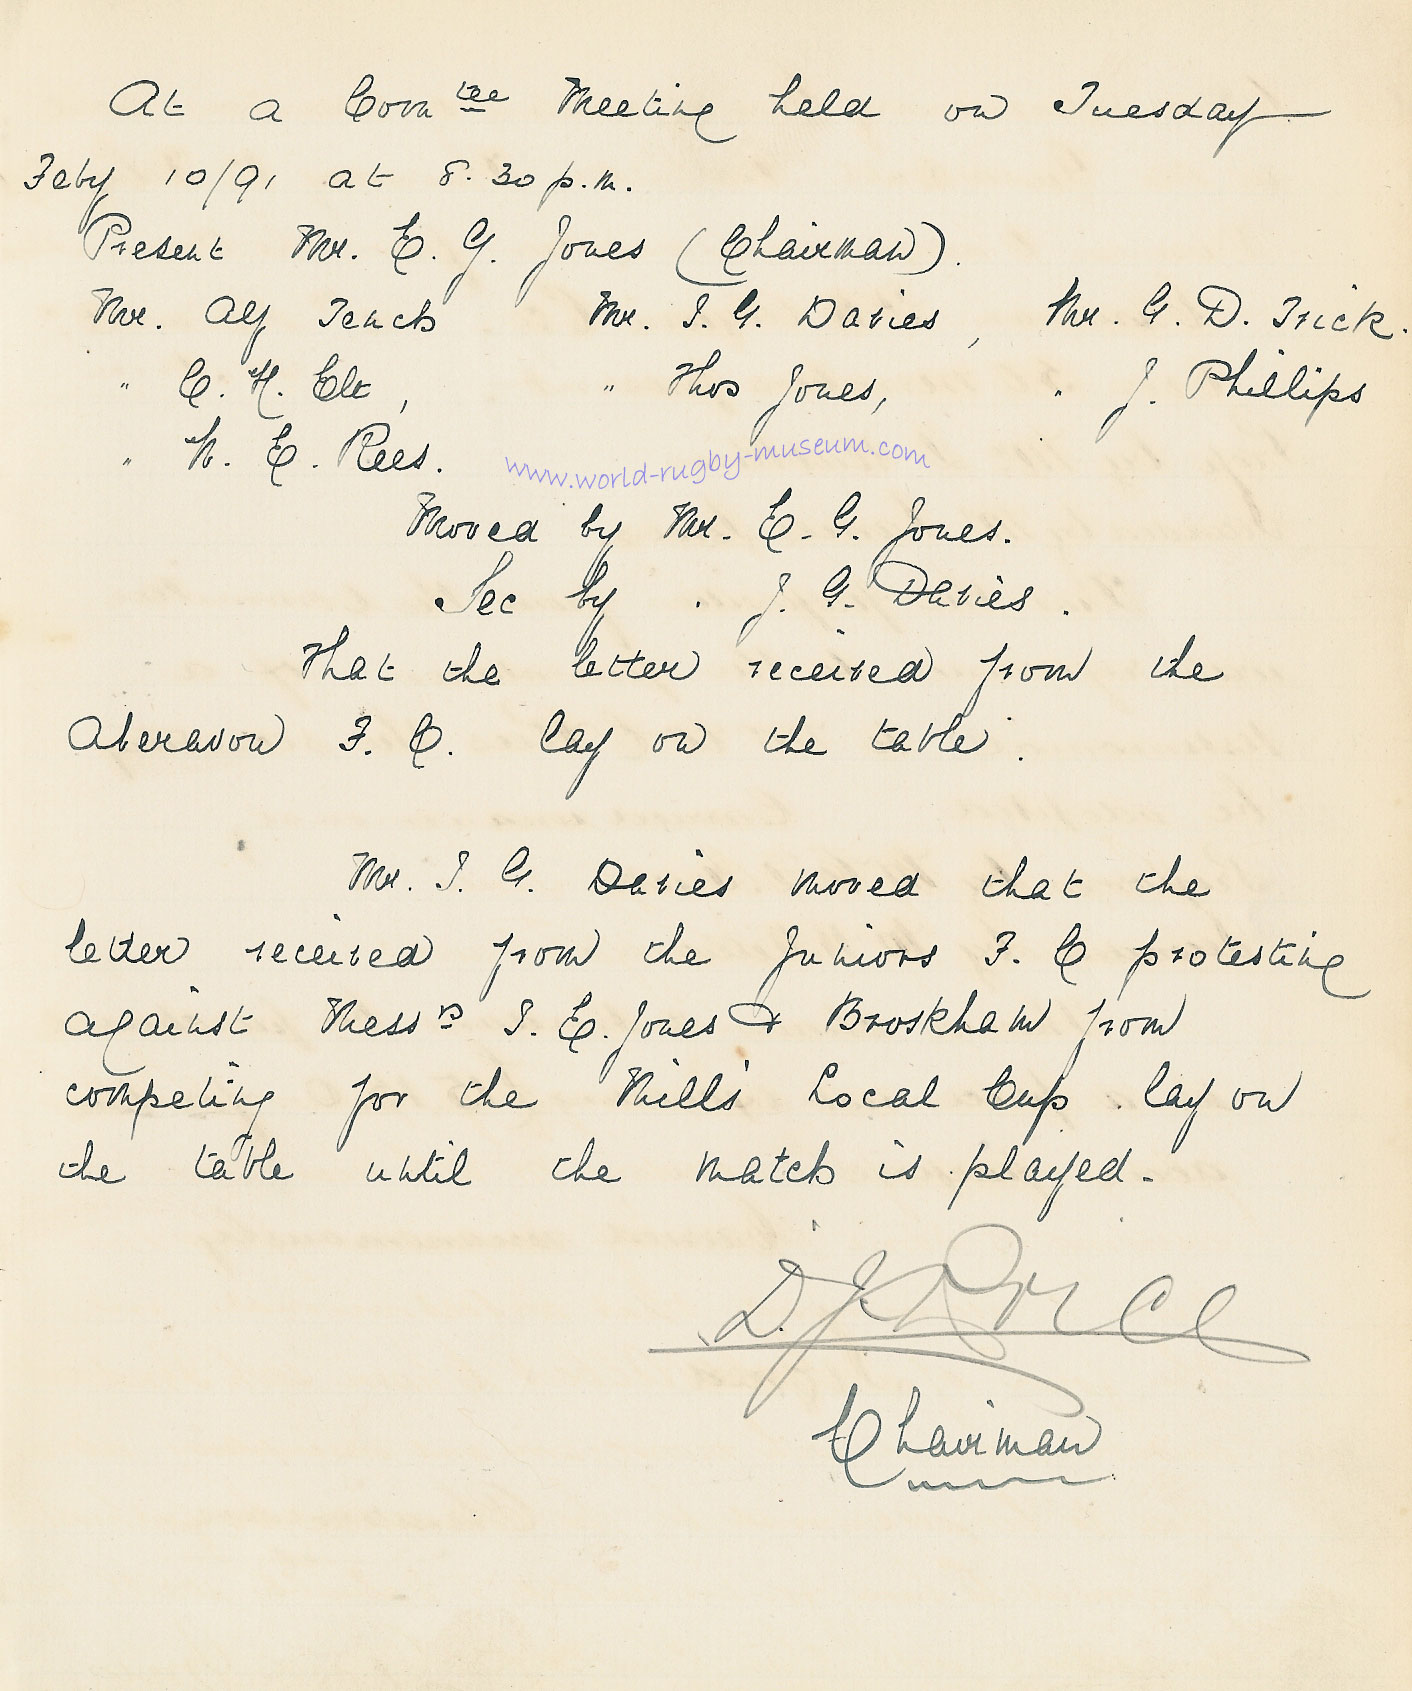 At a Com^tee Meeting held on Tuesday
Feby 10/91 at 8.30 p.m.
Present Mr. E. G. Jones (Chairman).
Mr. Alf Tench Mr. I. G. Davies, Mr. G. D. Trick.
" C. H. Elt, " Thos Jones, " J. Phillips
" W. E. Rees.
www.world-rugby-museum.com
Moved by Mr. E. G. Jones.
Sec by . J. G. Davies.
That the letter received from the
Aberavon F. C. lay on the table.
Mr. I. G. Davies moved that the
letter received from the Juniors F. C protesting
against Mess^rs I. E. Jones & Broskham from
competing for the Mills Local Cup . lay on
the table until the match is played.
D. J. Price
Chairman